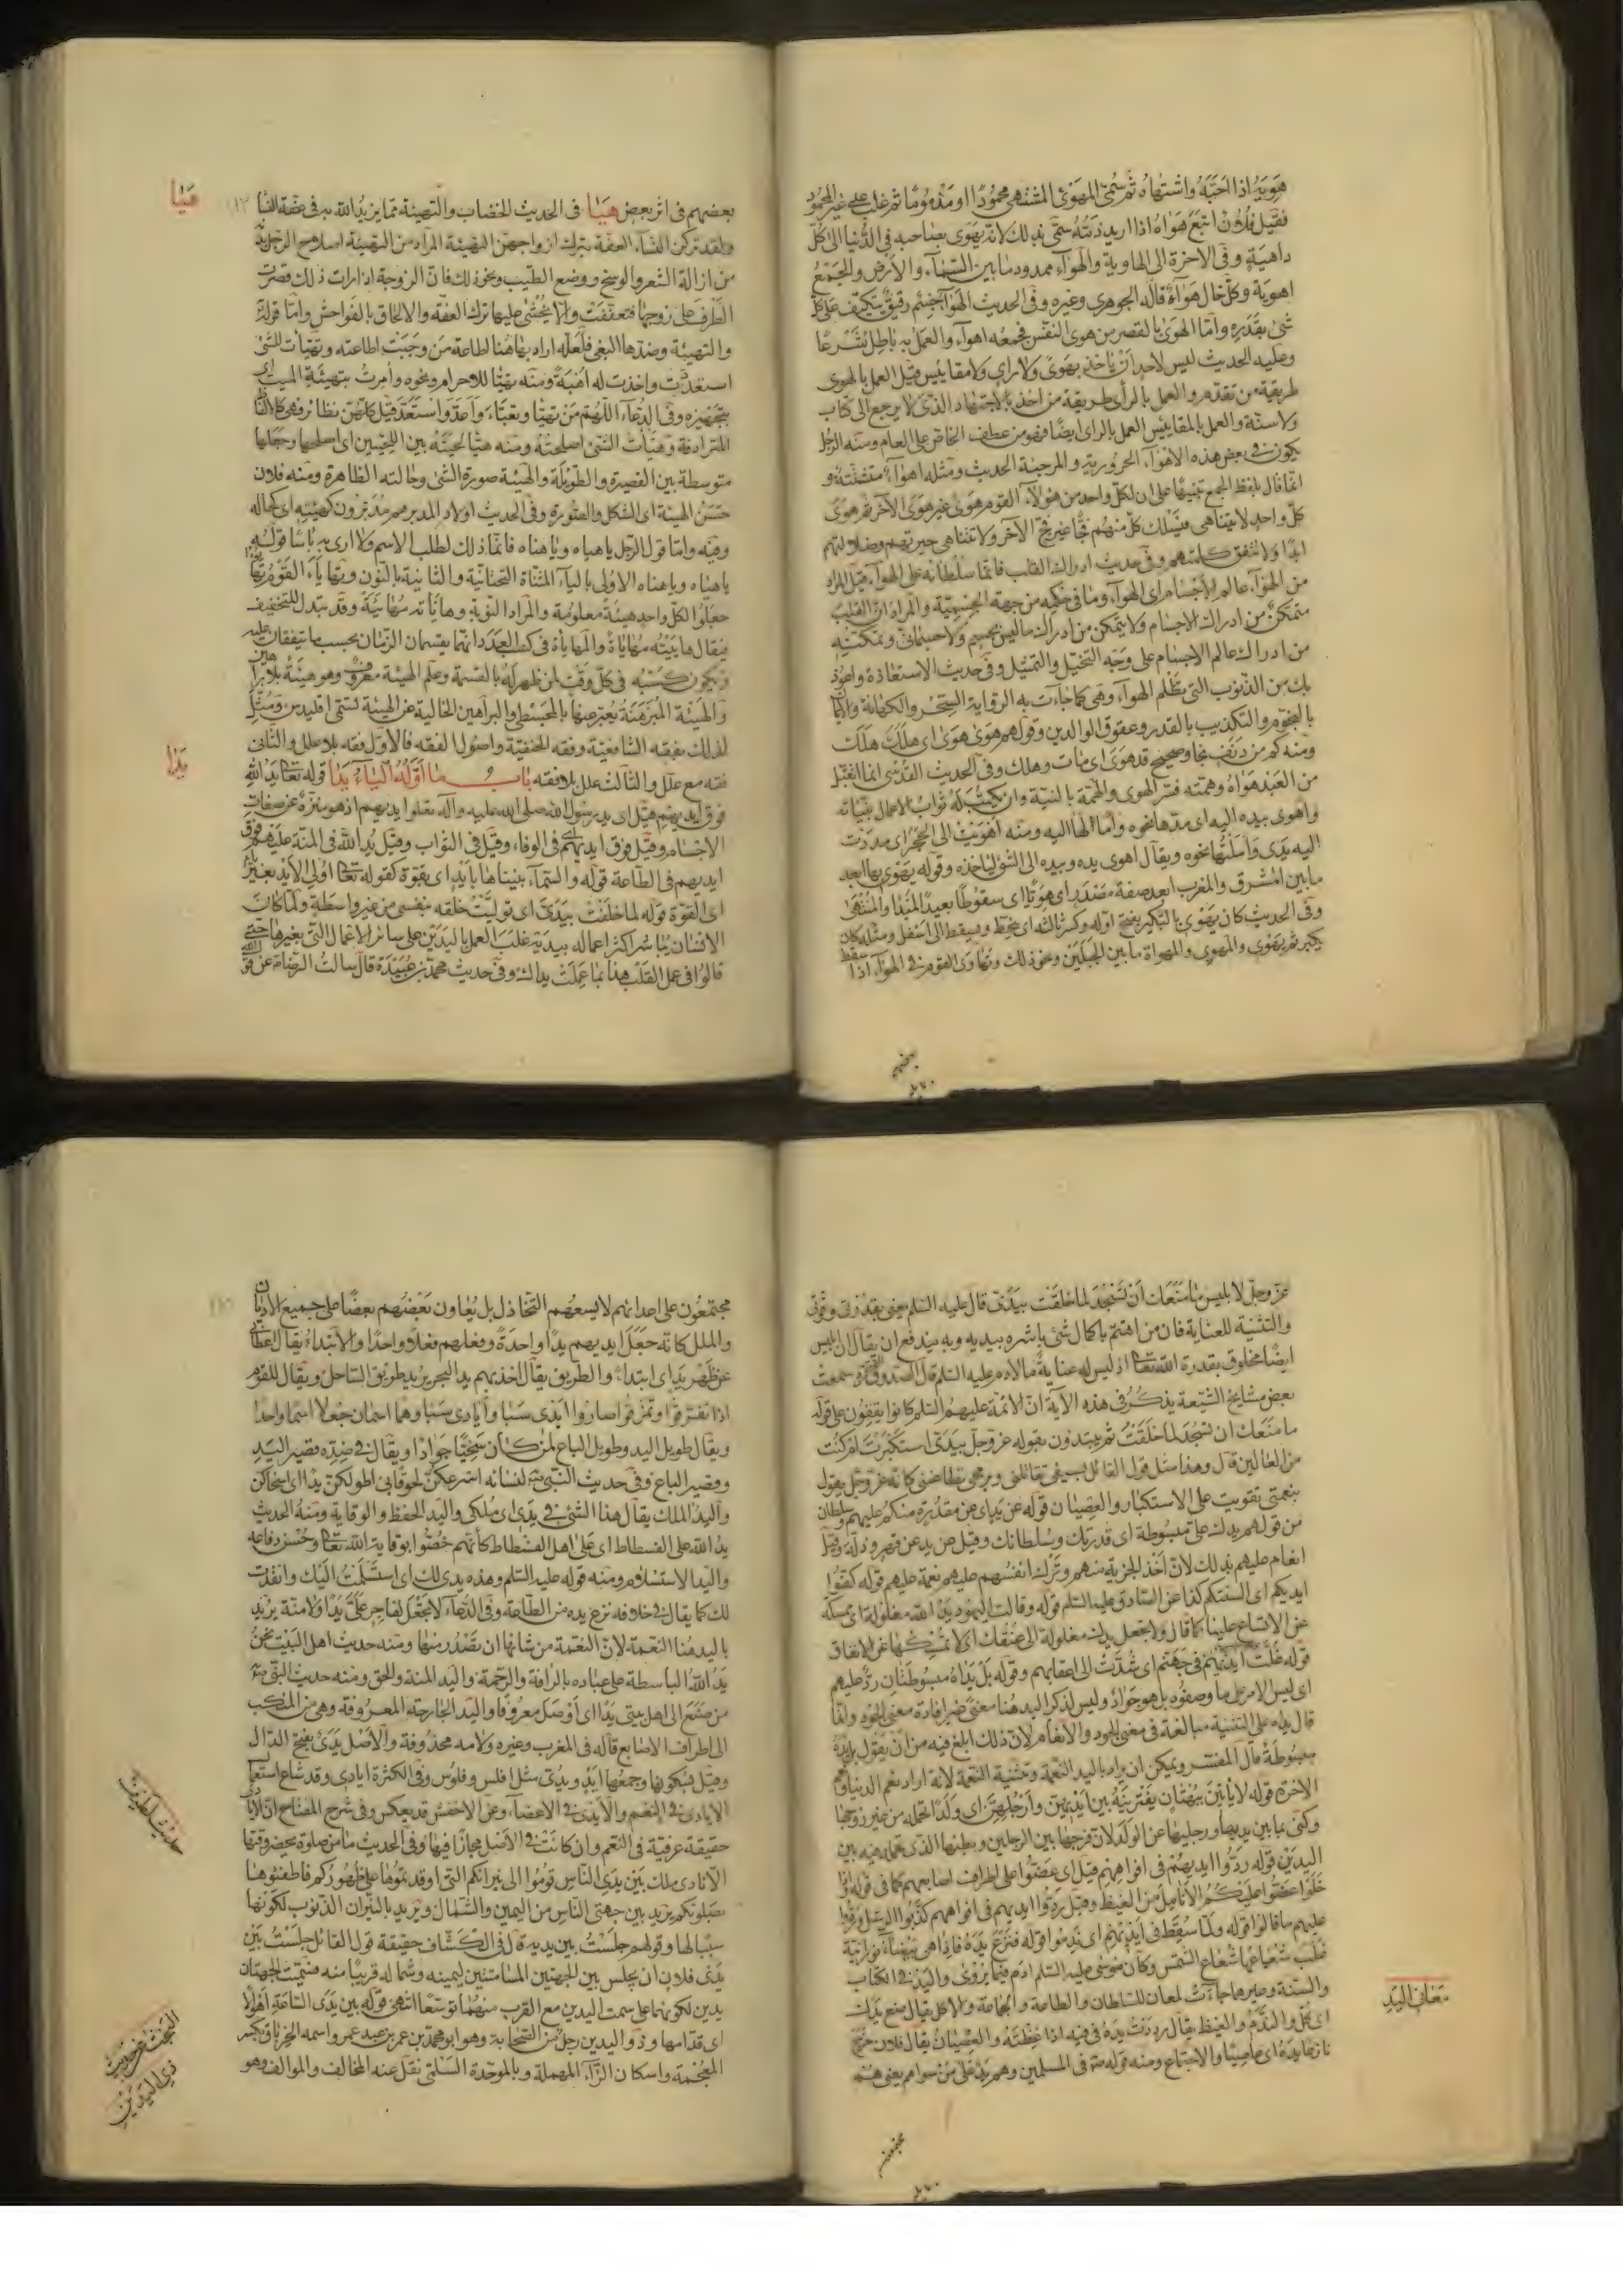 هويه اذا احبه واشتهاه ثم سمى المهوى المشتهى محمودا او مذموما ثم غلب على غير المحمود
فقيل فلان اتبع هواه اذا اريد ذمه سمى بذلك لانه يهوى بصاحبه فى الدنيا الى كل
داهية وفى الاخرة الى الهاوية والهواء ممدود ما بين السماء والارض والجمع
اهوية وكل خال هواء قاله الجوهرى وغيره وفى الحديث الهواء جسم رقيق يتكيف على كل
شئ بقدره واما الهوى بالقصر من هوى النفس فجمعه اهواء والعمل به باطل شرعا
وعليه الحديث ليس لاحد ان ياخذ بهوى ولا راى ولا مقاييس قيل العمل بالهوى
طريقة من تقدم والعمل بالرأى طريقة من اخذ بالاجتهاد الذى لا يرجع الى كتاب
ولا سنة والعمل بالمقاييس العمل بالراى ايضا فهو من عطف الخاص على العام ومنه الرجل
يكون فى بعض هذه الاهواء الحرورية والمرجئة الحديث ومثله اهواء متشتتة و
انما قال بلفظ الجمع تنبيها على ان لكل واحد من هؤلاء القوم هوى غير هوى الآخر ثم هوى
كل واحد لا يتناهى فيسلك كل منهم فجا غير فج الآخر ولا تتناهى حيرتهم وضلالتهم
ابدا ولا تتفق كلمتهم وفى حديث ادراك القلب فانما سلطانه على الهواء قيل المراد
من الهواء عالم الاجسام اى الهواء وما فى حكمه من جهة الجسمية والمراد ان القلب
متمكن من ادراك الاجسام ولا يتمكن من ادراك ما ليس بجسم ولا جسمانى ويمكنه
من ادراك عالم الاجسام على وجه التخيل والتمثيل وفى حديث الاستعاذة واعوذ
بك من الذنوب التى تظلم الهواء وهى كما جاءت به الرواية السحر والكهانة والايمان
بالنجوم والتكذيب بالقدر وعقوق الوالدين وقولهم هوى هوى اى هلك هلك
ومنه كم من دنف نجا وصحيح قد هوى اى مات وهلك وفى الحديث القدسى انما اتقبل
من العبد هواه وهمته فسر الهوى والهمة بالنية وان يكتب له ثواب الاعمال بنياته
واهوى بيده اليه اى مدها نحوه وامالها اليه ومنه اهويت الى الحجر اى مددت
اليه يدى واملتها نحوه ويقال اهوى يده وبيده الى الشئ لياخذه وقوله يهوى بها ابعد
ما بين المشرق والمغرب ابعد صفة مصدر اى هويا اى سقوطا بعيد المبتدأ والمنتهى
وفى الحديث كان يهوى بالتكبير بفتح اوله وكسر ثالثه اى ينحط ويسقط الى اسفل ومثله كان
يكبر ثم يهوى والمهوى والمهواة ما بين الجبلين ونحو ذلك وتهاوى القوم فى الهواء اذا سقط
بعضهم
هيا
بعضهم فى اثر بعض هيا فى الحديث الخضاب والتهيئة مما يزيد الله به فى عفة النساء
ولقد تركن النساء العفة بترك ازواجهن التهيئة المراد من التهيئة اصلاح الرجل بدنه
من ازالة الشعر والوسخ ووضع الطيب ونحو ذلك فان الزوجة اذا رات ذلك قصرت
الطرف على زوجها فتعففت والا يخشى عليها ترك العفة والالحاق بالفواحش واما قوله
والتهيئة وضدها البغى فلعله اراد بها هنا اطاعة من وجبت اطاعته وتهيأت للشئ
استعددت واخذت له اهبة ومنه تهيأ للاحرام ونحوه وامرت بتهيئة الميت اى
بتجهيزه وفى الدعاء اللهم من تهيأ وتعبأ واعد واستعد قيل كلهن نظائر فهى كالالفاظ
المترادفة وهيأت الشئ اصلحته ومنه هيأ لحيته بين اللحيين اى اصلحها وجعلها
متوسطة بين القصيرة والطويلة والهيئة صورة الشئ وحالته الظاهرة ومنه فلان
حسن الهيئة اى الشكل والصورة وفى الحديث اولاد المدبر مدبرون كهيئته اى كحاله
ومنه واما قول الرجل يا هياه ويا هناه فانما ذلك لطلب الاسم ولا ارى به باسا قوله
يا هياه ويا هناه الاولى بالياء المثناة التحتانية والثانية بالنون وتهايأ القوم تهايؤا
جعلوا لكل واحد هيئة معلومة والمراد النوبة وهايأته مهايئة وقد تبدل للتخفيف
فيقال هاييته مهاياة والمهاياة فى كسب العبد انهما يقسمان الزمان بحسب ما يتفقان عليه
ويكون كسبه فى كل وقت لمن ظهر له بالقسمة وعلم الهيئة معروف وهو هيئة بلا براهين
والهيئة المبرهنة يعبر عنها بالمجسطى والبراهين الخالية عن الهيئة تسمى اقليدس ومثل
لذلك بفقه الشافعية وفقه الحنفية واصول الفقه فالاول فقه بلا علل والثانى
يدا
فقه مع علل والثالث علل بلا فقه باب ما اوله الياء يدا قوله تعالى يد الله
فوق ايديهم قيل اى يد رسول الله صلى الله عليه وآله تعلوا ايديهم اذ هو منزه عن صفات
الاجسام وقيل فوق ايديهم فى الوفاء وقيل فى الثواب وقيل يد الله فى المنة عليهم فوق
ايديهم فى الطاعة قوله والسماء بنيناها بأيد اى بقوة كقوله تعالى اولى الايد بغير ياء
اى القوة قوله لما خلقت بيدى اى توليت خلقه بنفسى من غير واسطة ولما كان
الانسان يباشر اكثر اعماله بيديه غلب العمل باليدين على سائر الاعمال التى بغيرها حتى
قالوا فى عمل القلب هذا بما عملت يداك وفى حديث محمد بن عبيدة قال سالت الرضا عن قول الله
عز وجل لابليس ما منعك أن تسجد لما خلقت بيدى قال عليه السلم يعنى بقدرتى وقوتى
والتثنية للعناية فان من اهتم باكمال شئ باشره بيديه وبه يندفع ان يقال ان ابليس
ايضا مخلوق بقدرة الله تعالى اذ ليس له عناية ما لادم عليه السلم قال الصدوق وسمعت
بعض مشايخ الشيعة يذكر فى هذه الآية ان الائمة عليهم السلم كانوا يقفون على قوله
ما منعك ان تسجد لما خلقت ثم يبتدون بقوله عز وجل بيدى استكبرت ام كنت
من العالين قال وهذا مثل قول القائل بسيفى تقاتلنى وبرمحى تطاعننى كانه عز وجل يقول
بنعمتى تقويت على الاستكبار والعصيان قوله عن يد اى عن مقدرة منكم عليهم وسلطان
من قولهم يدك على مبسوطة اى قدرتك وسلطانك وقيل عن يد عن قهر وذلة وقيل
انعام عليهم بذلك لان اخذ الجزية منهم وترك انفسهم عليهم نعمة عليهم قوله كفوا
ايديكم اى السنتكم كذا عن الصادق عليه السلم قوله وقالت اليهود يد الله مغلولة اى ممسكة
عن الاتساع علينا كما قال ولا تجعل يدك مغلولة الى عنقك اى لا تمسكها عن الانفاق
قوله غلت ايديهم فى جهنم اى شدت الى اعناقهم وقوله بل يداه مبسوطتان رد عليهم
اى ليس الامر على ما وصفوه بل هو جواد وليس لذكر اليد هنا معنى غير افادة معنى الجود وانما
قال يداه على التثنية مبالغة فى معنى الجود والانعام لان ذلك ابلغ فيه من ان يقول بل يده
مبسوطة قال المفسر ويمكن ان يراد باليد النعمة وتثنية النعمة لانه اراد نعم الدنيا ونعم
الاخرة قوله لا يأتين ببهتان يفترينه بين ايديهن وارجلهن اى ولدا تحمله من غير زوجها
وكنى بما بين يديها ورجليها عن الولد لان فرجها بين الرجلين وبطنها الذى تحمله فيه بين
اليدين قوله ردوا ايديهم فى افواههم قيل اى عضوا على اطراف اصابعهم كما فى قوله اذا
خلوا عضوا عليكم الانامل من الغيظ وقيل ردوا ايديهم فى افواههم كذبوا الرسل وردوا
عليهم ما قالوا قوله ولما سقط فى ايديهم اى ندموا قوله فنزع يده فاذا هى بيضاء نورانية
غلب شعاعها شعاع الشمس وكان موسى عليه السلم ادم فيما يروى واليد فى الكتاب
معانى اليد
والسنة وغيرها جاءت لمعان للسلطان والطاعة والجماعة والاكل يقال ضع يدك
اى كل والندم والغيظ يقال رددت يده فى فيه اذا غظته والعصيان يقال فلان خرج
نازعا يده اى عاصيا والاجتماع ومنه قوله فى المسلمين وهم يد على من سواهم يعنى هم
مجتمعون
مجتمعون على اعدائهم لا يسعهم التخاذل بل يعاون بعضهم بعضا على جميع الاديان
والملل كانه جعل ايديهم يدا واحدة وفعلهم فعلا واحدا والابتداء يقال اعطانى
عن ظهر يد اى ابتداء والطريق يقال اخذ بهم يد البحر يريد طريق الساحل ويقال للقوم
اذا تفرقوا وتمزقوا صاروا ايدى سبا وأيادى سبا وهما اسمان جعلا اسما واحدا
ويقال طويل اليد وطويل الباع لمن كان سخيا جوادا ويقال فى ضده قصير اليد
وقصير الباع وفى حديث النبى لنسائه اسرعكن لحوقا بى اطولكن يدا اى اسخاكن
واليد الملك يقال هذا الشئ فى يدى اى ملكى واليد الحفظ والوقاية ومنه الحديث
يد الله على الفسطاط اى على اهل الفسطاط كأنهم خصوا بوقاية الله تعالى وحسن دفاعه
واليد الاستسلام ومنه قوله عليه السلم وهذه يدى لك اى استسلمت اليك وانقدت
لك كما يقال فى خلافه نزع يده من الطاعة وفى الدعاء لا تجعل لفاجر على يدا ولا منة يريد
باليد هنا النعمة لان النعمة من شانها ان تصدر منها ومنه حديث اهل البيت نحن
يد الله الباسطة على عباده بالرافة والرحمة واليد المنة والحق ومنه حديث النبى
من صنع الى اهل بيتى يدا اى أوصل معروفا واليد الجارحة المعروفة وهى من المنكب
الى اطراف الاصابع قاله فى المغرب وغيره ولامه محذوفة والاصل يدى بفتح الدال
وقيل بسكونها وجمعها ايد ويدى مثل افلس وفلوس وفى الكثرة ايادى وقد شاع استعمال
الايادى فى النعم والايدى فى الاعضاء وعن الاخفش قد يعكس وفى شرح المفتاح ان الايادى
حقيقة عرفية فى النعم وان كانت فى الاصل مجازا فيها وفى الحديث ما من صلوة يحضر وقتها
الا نادى ملك بين يدى الناس قوموا الى نيرانكم التى اوقدتموها على ظهوركم فاطفئوها
بصلوتكم يريد بين جهتى الناس من اليمين والشمال ويريد بالنيران الذنوب لكونها
سببا لها وقولهم جلست بين يديه قال فى الكشاف حقيقة قول القائل جلست بين
يدى فلان ان يجلس بين الجهتين المسامتتين ليمينه وشماله قريبا منه فسميت الجهتان
يدين لكونهما على سمت اليدين مع القرب منهما توسعا انتهى قوله بين يدى الساعة اهوالا
اى قدامها وذو اليدين رجل من الصحابة وهو ابو محمد بن عمر بن عبد عمر واسمه الخرباق بكسر
المعجمة واسكان الراء المهملة وبالموحدة السلمى نقل عنه المخالف والموالف وهو
حديث لطيف
البحث عن حديث
ذى اليدين